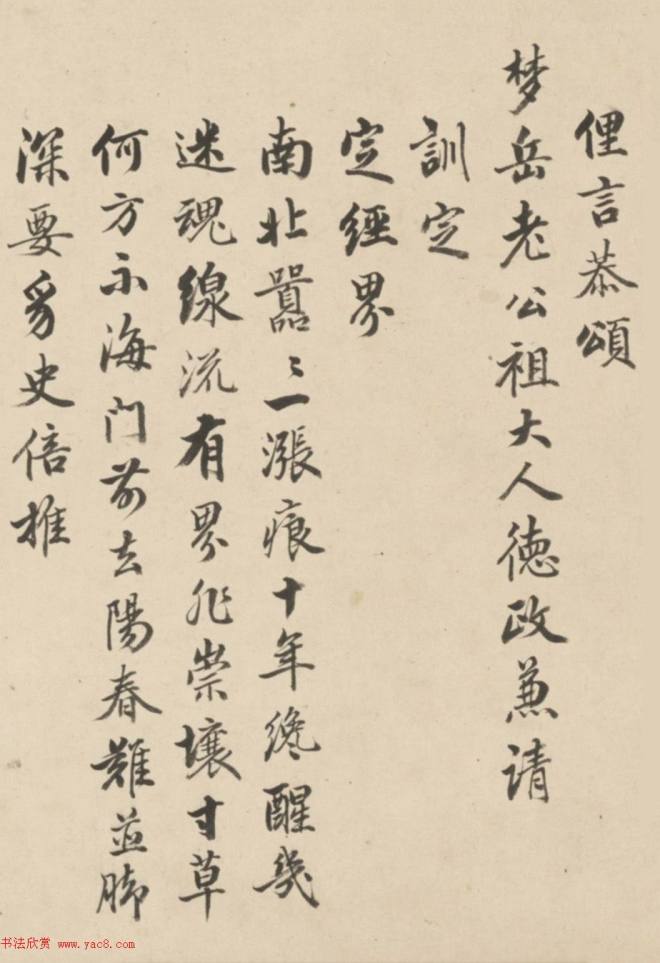 俚言恭頌
梦岳老公祖大人德政兼请
訓定
定經界
南北囂〻一漲痕十年纔醒幾
迷魂線流有界非崇壤寸草
何方示海门前去陽春難並脚
深要爲史倍推
书法欣赏 www.yac8.com